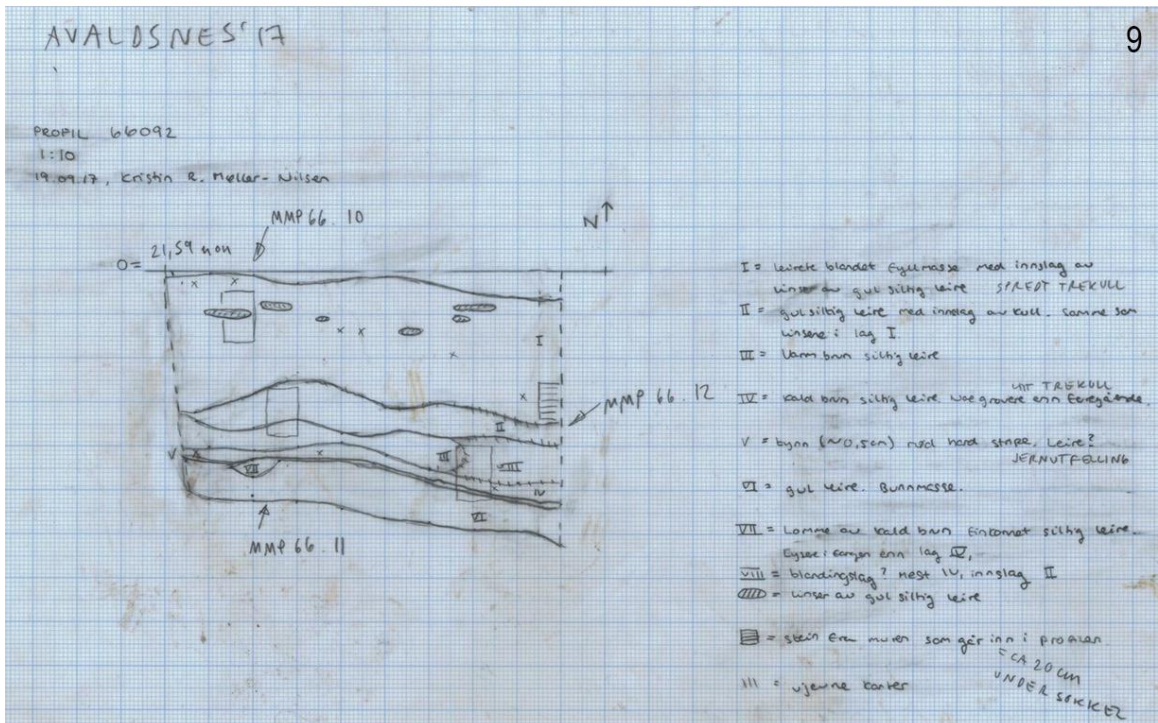 AVALDSNES '17
9
PROFIL 66092
1:10
19.09.17, Kristin R. Møller-Nilsen
MMP 66.10
N
0= 21,59 moh
I
II
MMP 66.12
III
VIII
V
VII
IV
VI
MMP 66.11
I = leirete blandet fyllmasse med innslag av
linser av gul siltig leire SPREDT TREKULL
II = gul siltig leire med innslag av kull. Samme som
linsene i lag I.
III = Varm brun siltig leire
LITT TREKULL
IV = kald brun siltig leire. Noe grovere enn foregående.
V = tynn (~0,5cm) rød hard stripe. Leire?
JERNUTFELLING
VI = gul leire. Bunnmasse.
VII = Lomme av kald brun finkornet siltig leire.
Lysere i fargen enn lag IV.
VIII = blandingslag? mest IV, innslag II
= linser av gul siltig leire
= stein fra muren som går inn i profilen
= CA 20 CM
UNDER SOKKEL
= ujevne kanter